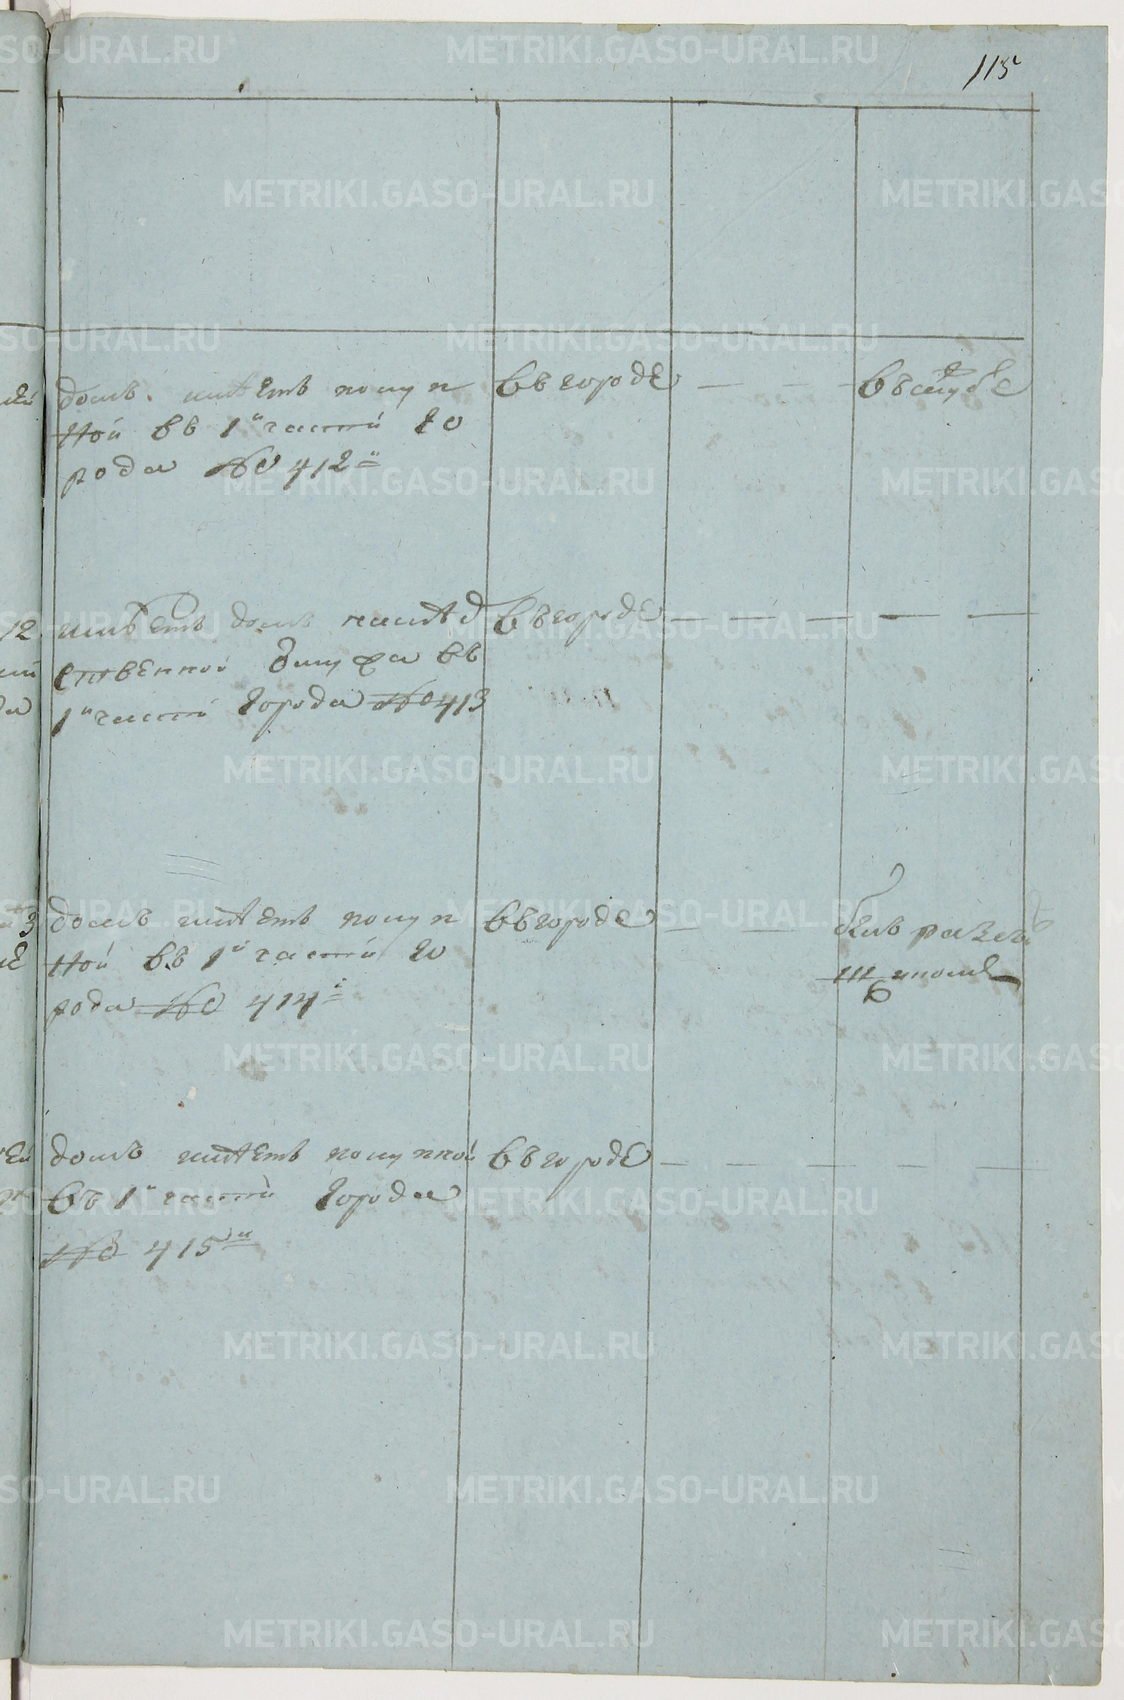 115
домъ имѣетъ покуп въ городѣ — — въ службе
ной въ 1й части го
рода № 412й
имѣетъ домъ наслѣд въ городѣ — — — — —
ственной въ
1й части города № 413
домъ имѣетъ покуп въ городе — — былъ
ной въ 1й части го
рода № 414й
домъ имѣетъ покупной въ городѣ — — — — —
въ 1й части города
№ 415й
METRIKI.GASO-URAL.RU